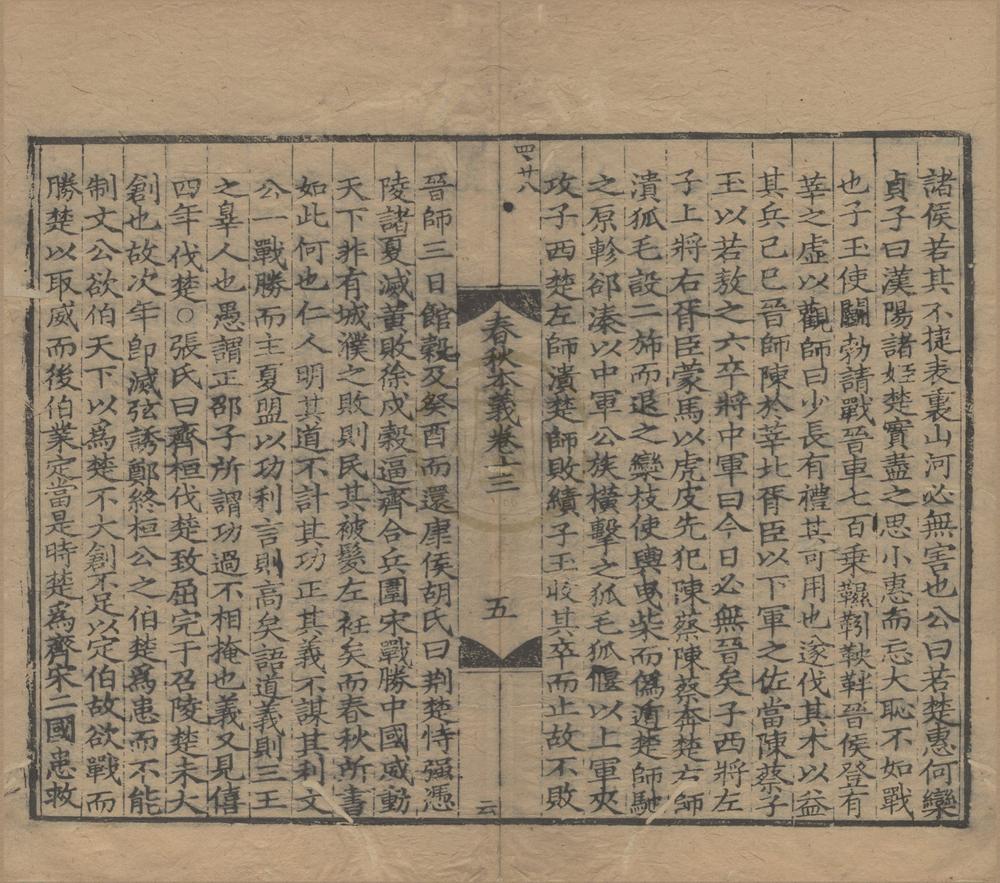 諸侯若其不捷表裏山河必無害也公曰若楚惠何欒
貞子曰漢陽諸姬楚實盡之思小惠而忘大恥不如戰
也子玉使鬬勃請戰晉車七百乗韅靷鞅靽晉侯登有
莘之虛以觀師曰少長有禮其可用也遂伐其木以益
其兵己巳晉師陳於莘北胥臣以下軍之佐當陳蔡子
玉以若敖之六卒將中軍曰今日必無晉矣子西將左
子上將右胥臣蒙馬以虎皮先犯陳蔡陳蔡奔楚右師
潰狐毛設二斾而退之欒枝使輿曳柴而僞遁楚師馳
之原軫郤溱以中軍公族橫擊之狐毛狐偃以上軍夾
攻子西楚左師潰楚師敗績子玉收其卒而止故不敗
四、廿八
春秋本義卷十三
五
云
晉師三日館穀及癸酉而還康侯胡氏曰荆楚恃强憑
陵諸夏滅黃敗徐戍穀逼齊合兵圍宋戰勝中國威動
天下非有城濮之敗則民其被髮左衽矣而春秋所書
如此何也仁人明其道不計其功正其義不謀其利文
公一戰勝而主夏盟以功利言則高矣語道義則三王
之辠人也愚謂正邵子所謂功過不相掩也義又見僖
四年伐楚○張氏曰齊桓伐楚致屈完于召陵楚未大
創也故次年卽滅弦誘鄭終桓公之伯楚爲患而不能
制文公欲伯天下以爲楚不大創不足以定伯故欲戰而
勝楚以取威而後伯業定當是時楚爲齊宋二國患救